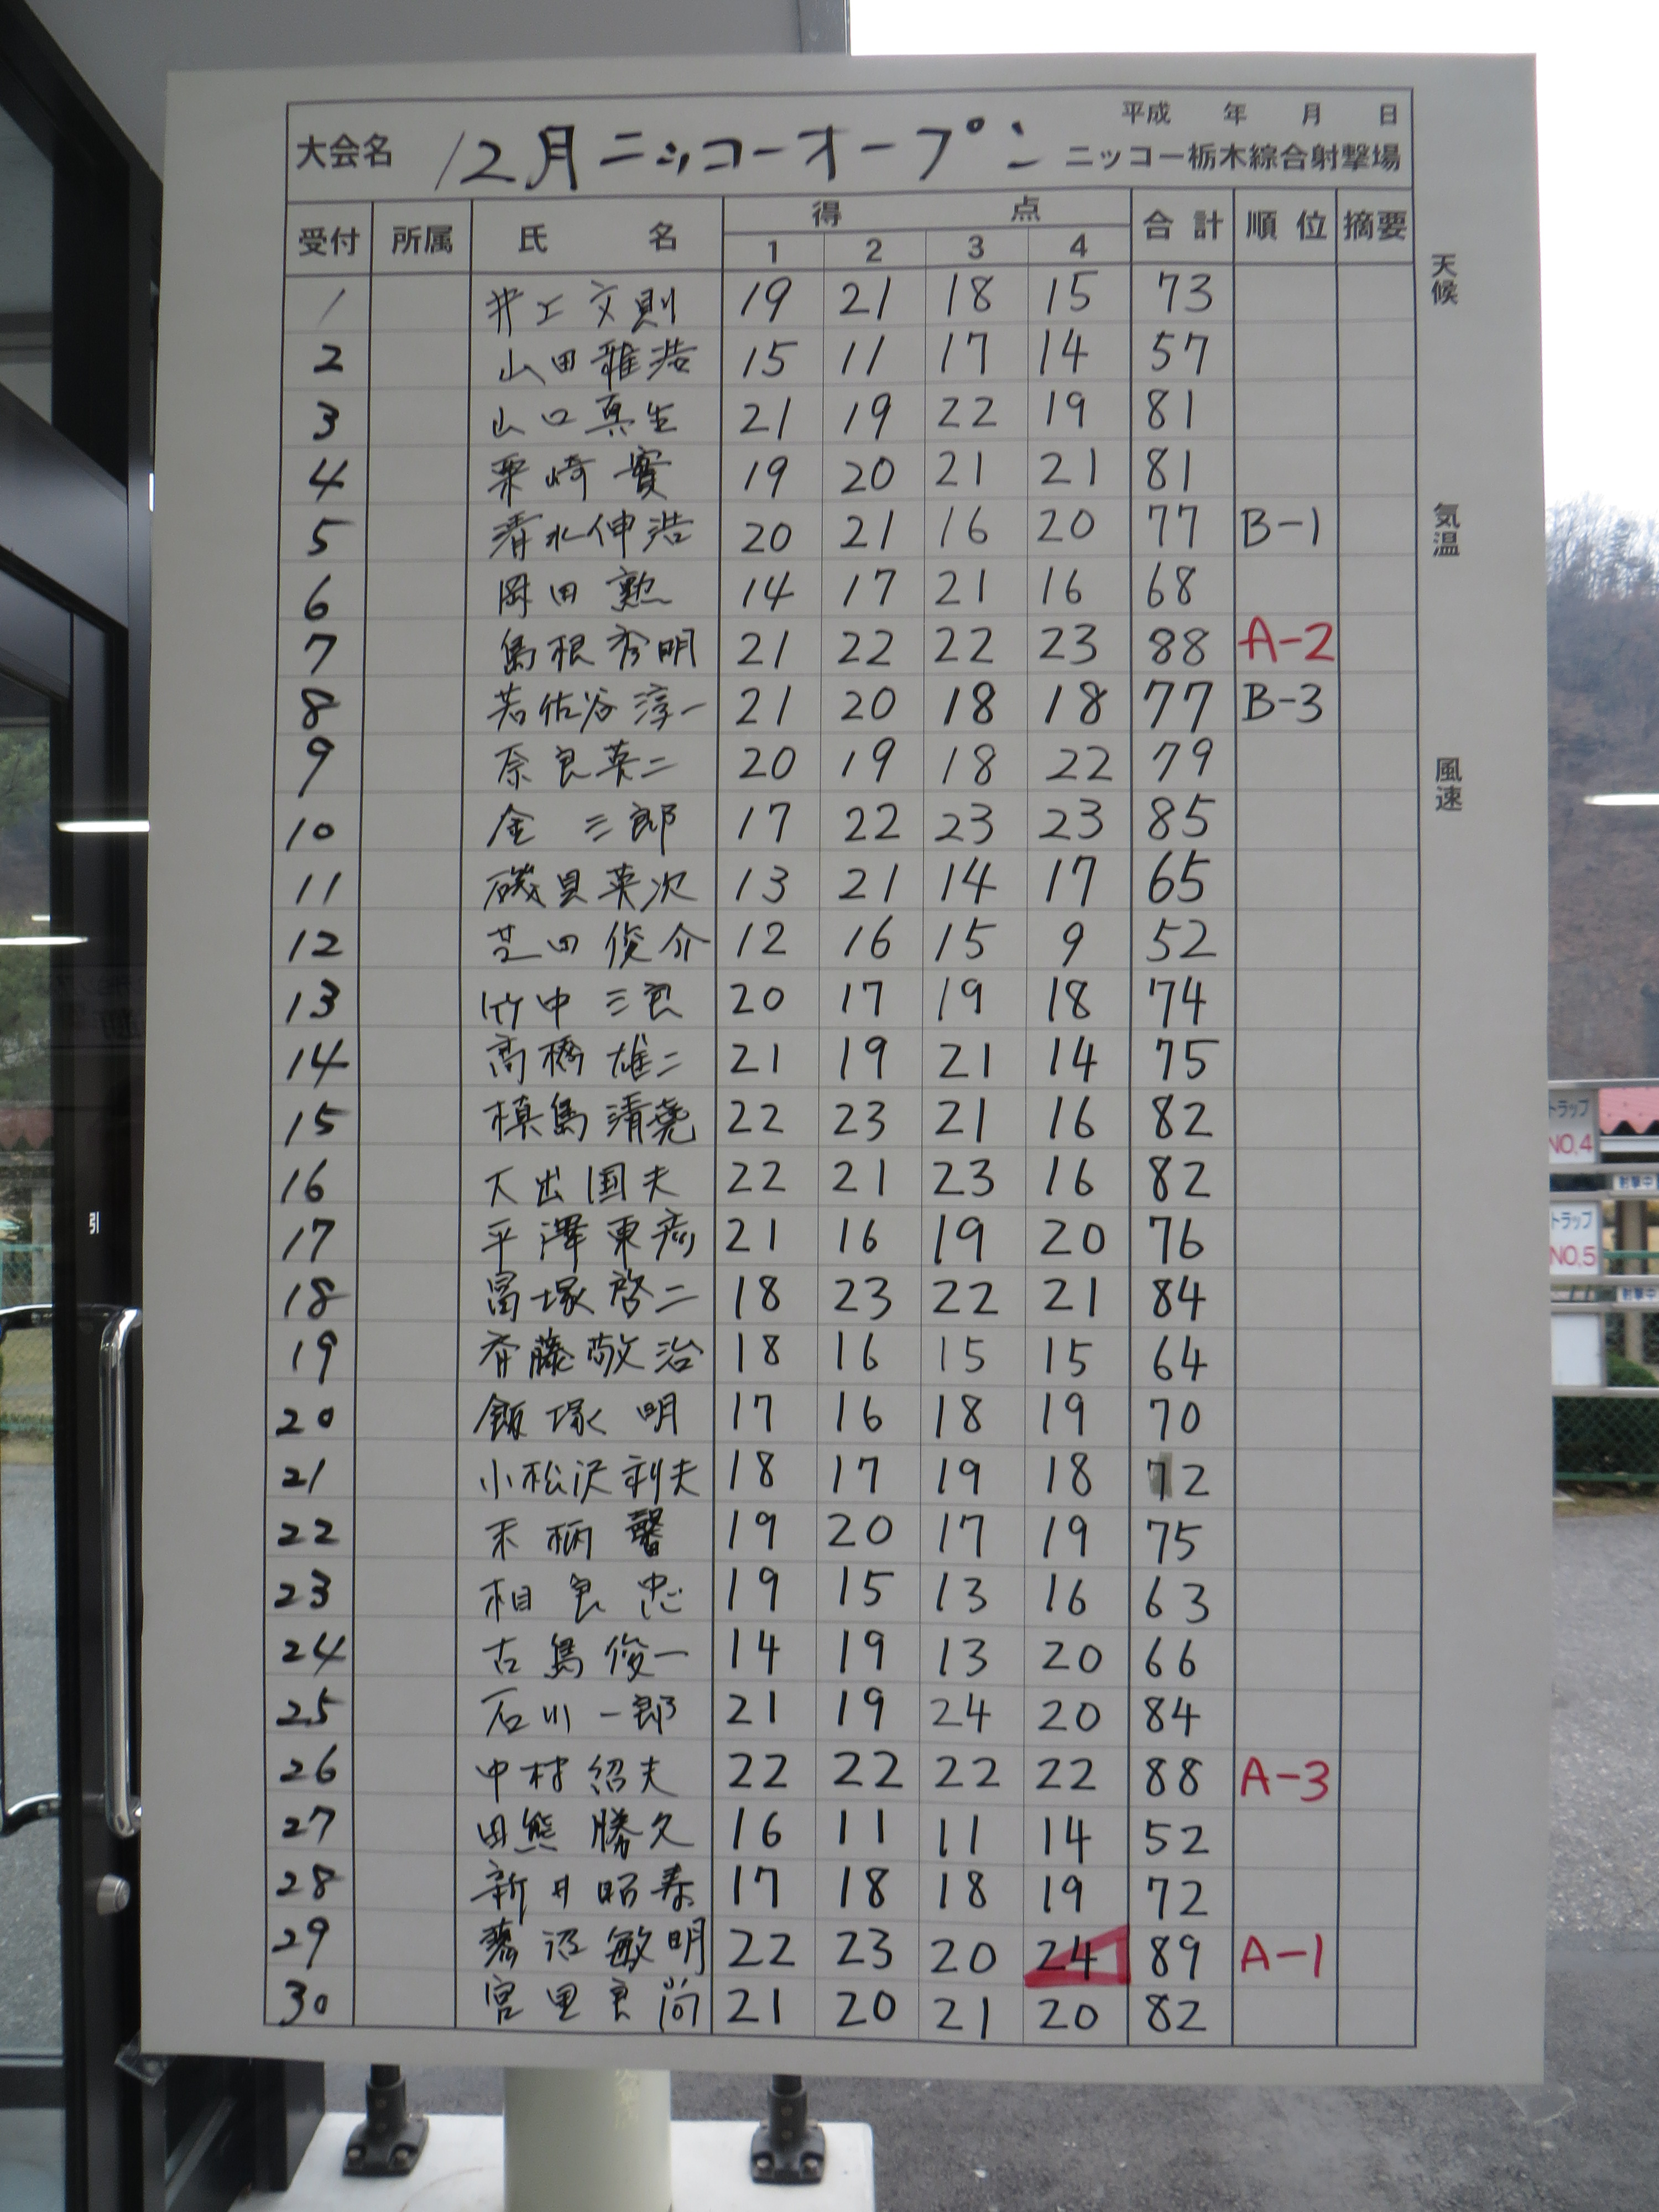 平成 年 月 日
大会名 12月ニッコーオープン ニッコー栃木綜合射撃場
受付 所属 氏名 得点 合計 順位 摘要
1 2 3 4
1 井上文則 19 21 18 15 73
2 山田雅浩 15 11 17 14 57
3 山口真生 21 19 22 19 81
4 栗崎實 19 20 21 21 81
5 清水伸浩 20 21 16 20 77 B-1
6 岡田勲 14 17 21 16 68
7 島根秀明 21 22 22 23 88 A-2
8 若佐谷淳一 21 20 18 18 77 B-3
9 奈良英二 20 19 18 22 79
10 金三郎 17 22 23 23 85
11 磯貝英次 13 21 14 17 65
12 芝田俊介 12 16 15 9 52
13 竹中三良 20 17 19 18 74
14 高橋雄二 21 19 21 14 75
15 槙島清堯 22 23 21 16 82
16 大出国夫 22 21 23 16 82
17 平澤東 21 16 19 20 76
18 冨塚啓二 18 23 22 21 84
19 斉藤敬治 18 16 15 15 64
20 飯塚明 17 16 18 19 70
21 小松沢利夫 18 17 19 18 72
22 柄馨 19 20 17 19 75
23 相良忠 19 15 13 16 63
24 古島俊一 14 19 13 20 66
25 石川一郎 21 19 24 20 84
26 中村紹夫 22 22 22 22 88 A-3
27 田熊勝久 16 11 11 14 52
28 新井昭泰 17 18 18 19 72
29 沼敏明 22 23 20 24 89 A-1
30 宮里良尚 21 20 21 20 82
天候
気温
風速
引
トラップ
NO.4
射撃中
トラップ
NO.5
射撃中